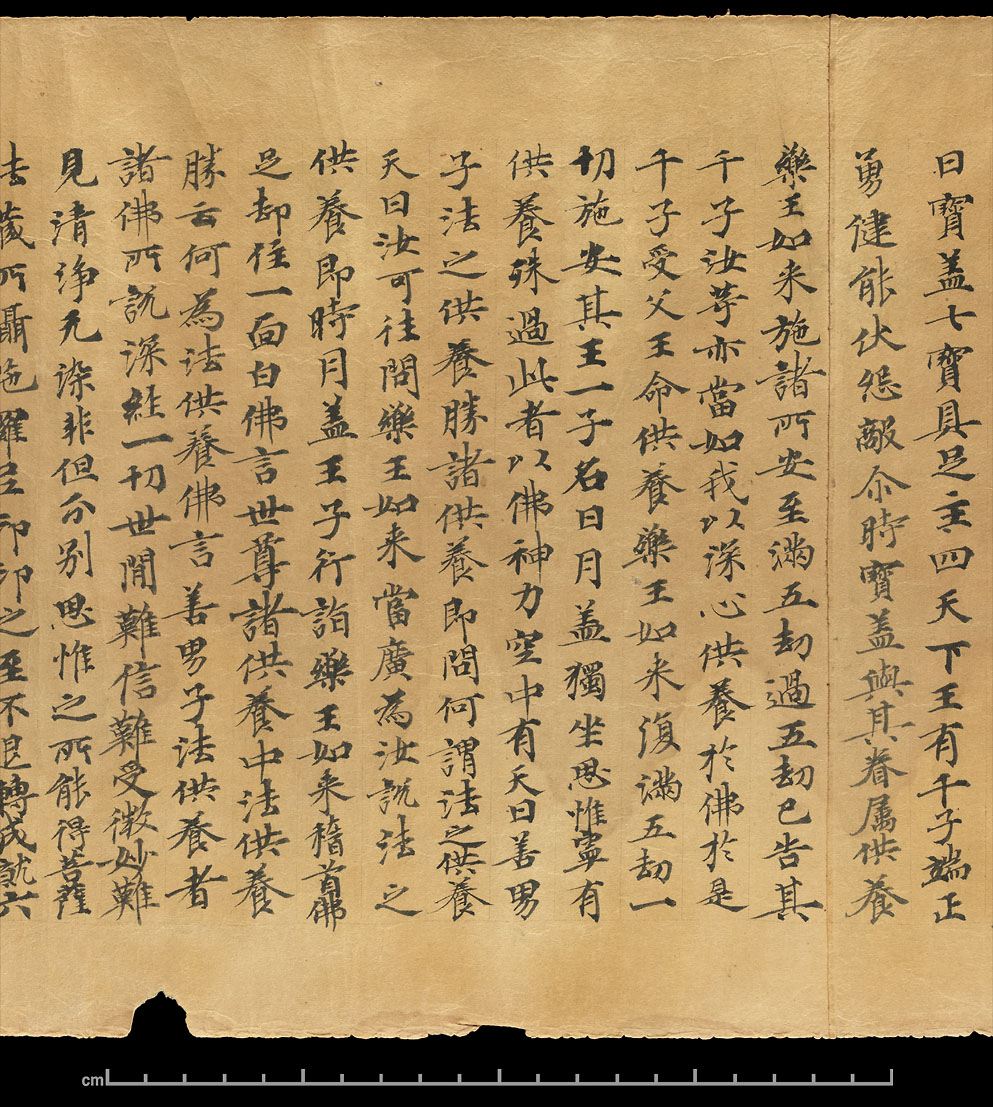 曰寶盖七寶具足主四天下王有千子端正
勇健能伏怨敵尒時寶盖與其眷属供養
藥王如来施諸所安至滿五劫過五劫已告其
千子汝䓁亦當如我以深心供養於佛於是
千子受父王命供養藥王如来復滿五劫一
切施安其王一子名曰月盖獨坐思惟寧有
供養殊過此者以佛神力空中有天曰善男
子法之供養勝諸供養即問何謂法之供養
天曰汝可往問藥王如来當廣為汝說法之
供養即時月盖王子行詣藥王如来稽首佛
足却住一面白佛言世尊諸供養中法供養
勝云何為法供養佛言善男子法供養者
諸佛所說深經一切世閒難信難受微妙難
見清淨无染非但分別思惟之所能得菩薩
法藏所攝陁羅尼印印之至不退轉成就六
cm